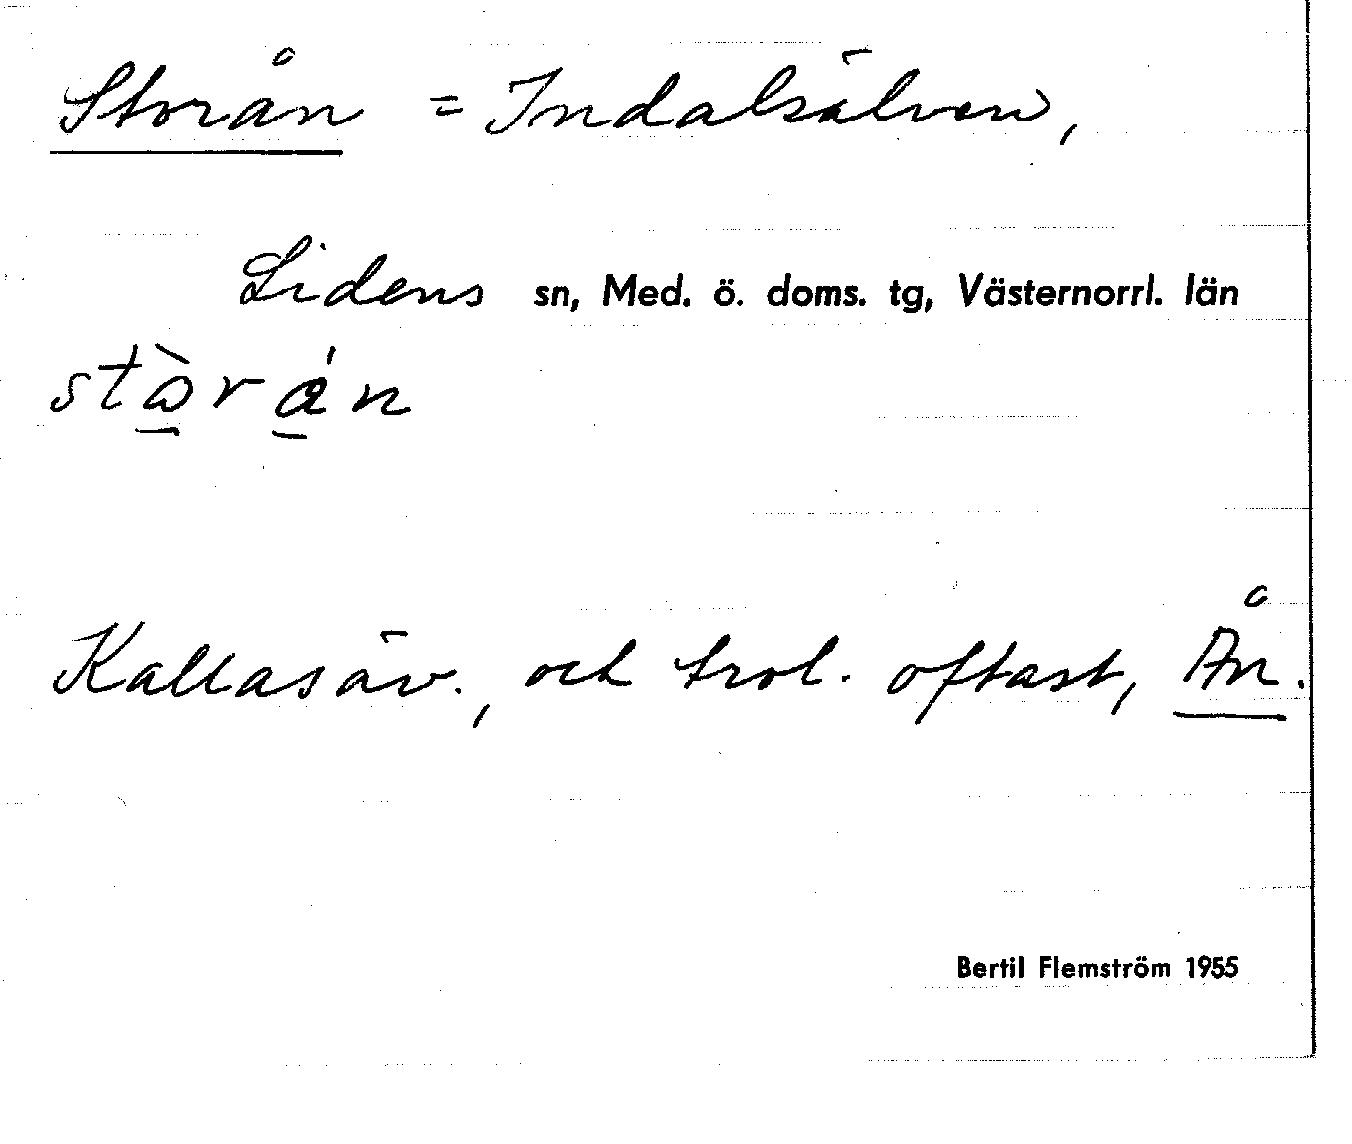 Storån = Indalsälven,
Lidens sn, Med. ö. doms. tg, Västernorrl. län
stò̱rá̱n
Kallas äv., och trol. oftast, Ån.
Bertil Flemström 1955